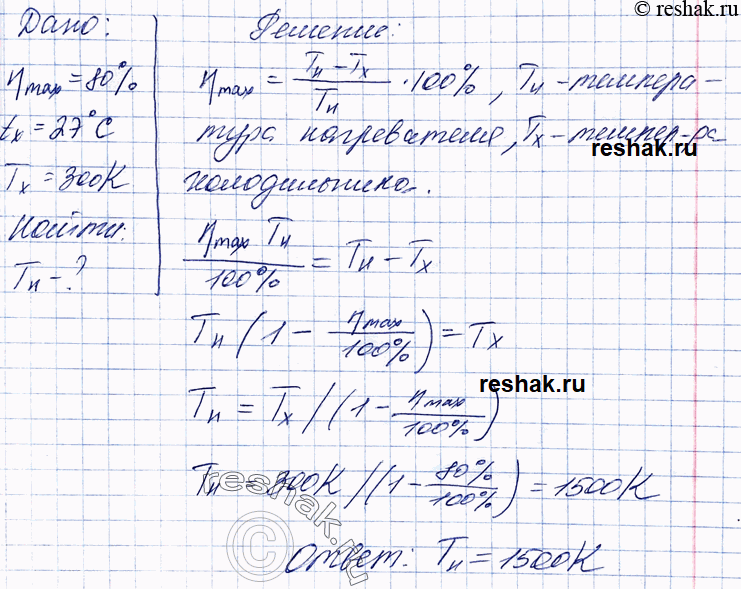 © reshak.ru
Дано:
η max = 80%
t х = 27°C
T х = 300K
Найти:
T н - ?
Решение:
η max = (T н - T х)/T н · 100%, T н - темпера-
тура нагревателя, T х - темпер-ра
reshak.ru
холодильника.
η max T н / 100% = T н - T х
T н (1 - η max / 100%) = T х
reshak.ru
T н = T х / (1 - η max / 100%)
T н = 300K / (1 - 80% / 100%) = 1500K
© reshak.ru
Ответ: T н = 1500K